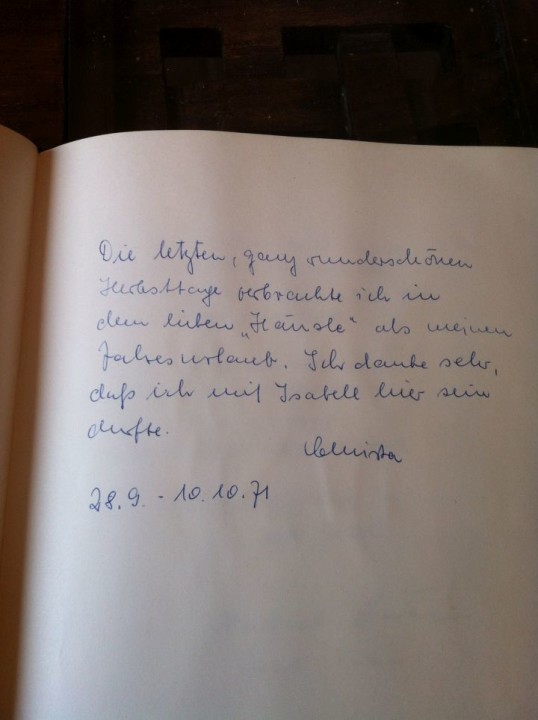 Die letzten, ganz wunderschönen
Herbsttage verbrachte ich in
dem lieben „Häusle“ als meinen
Jahresurlaub. Ich danke sehr,
daß ich mit Isabell hier sein
durfte.
Christa
28.9. - 10.10.71